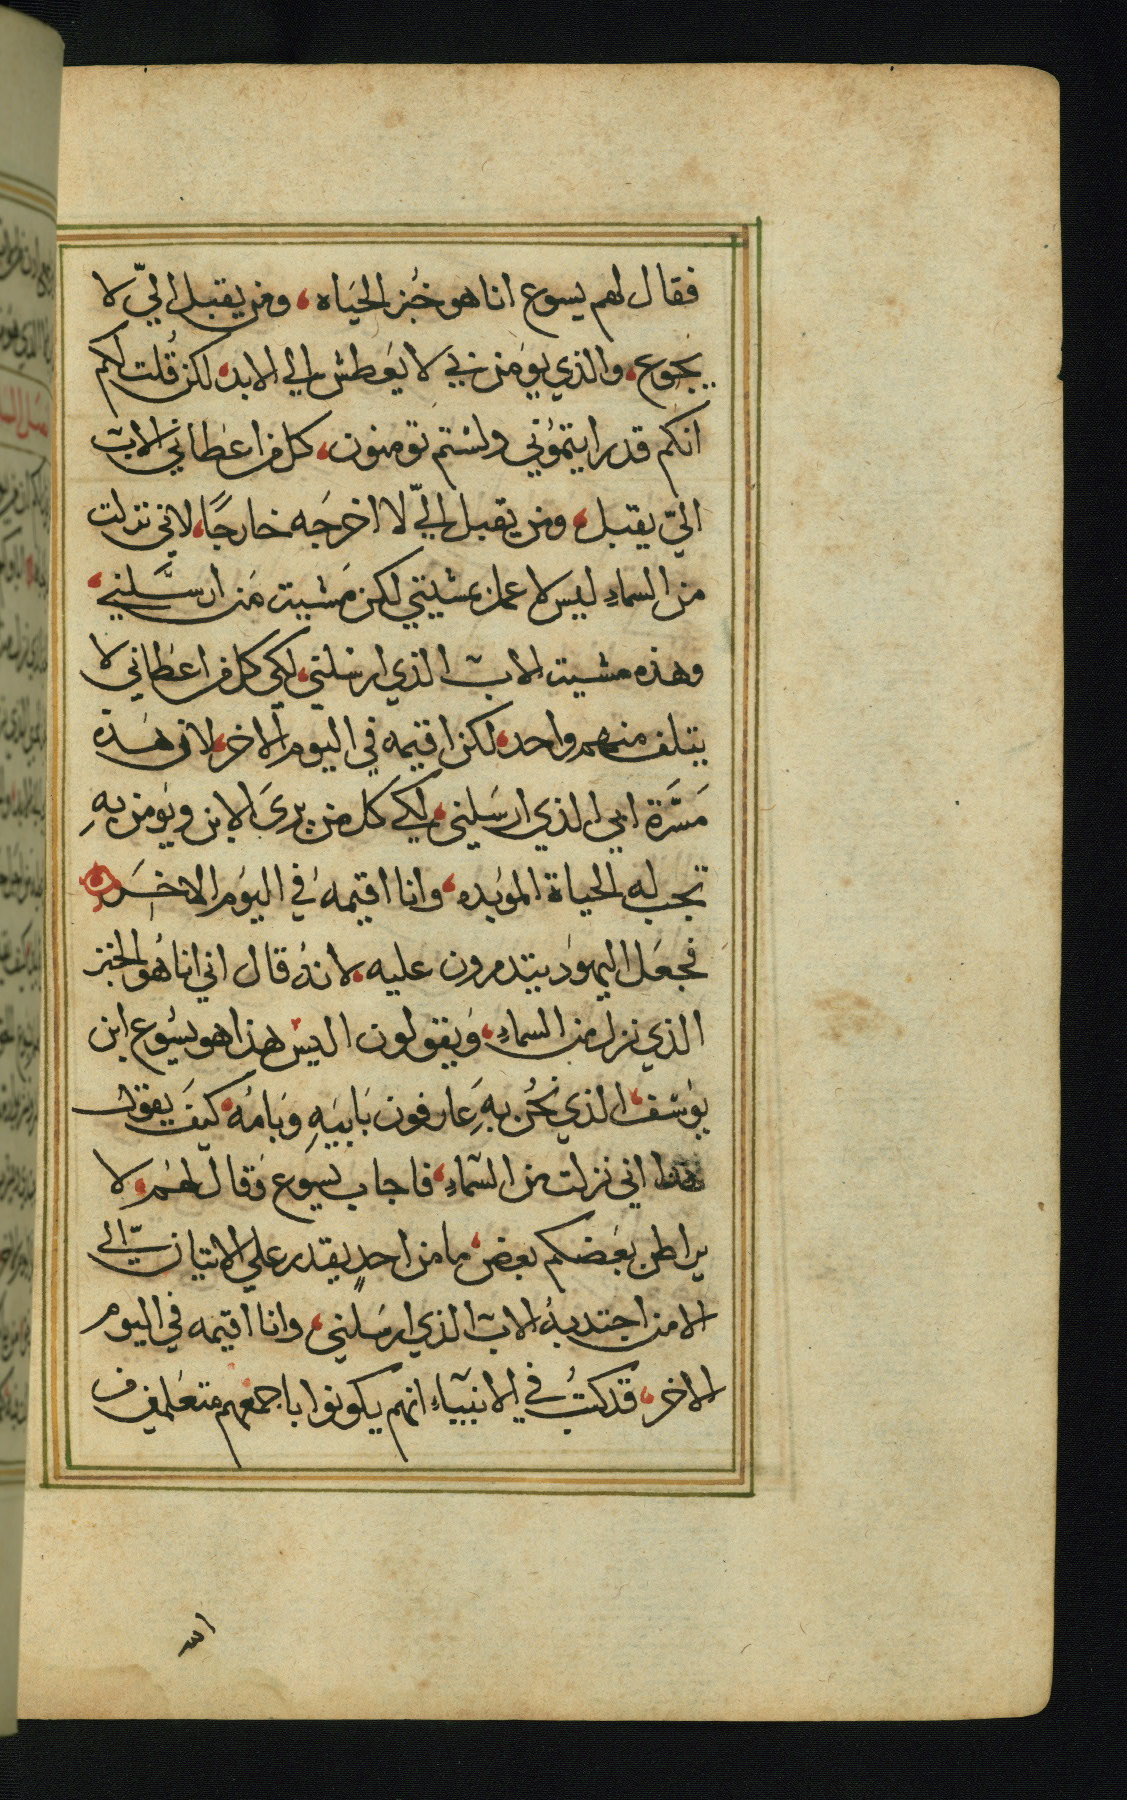 فقال لهم يسوع انا هو خبز الحياه، ومن يقبل اليّ لا
يجوع، والذي يؤمن بي لا يعطش الي الابد، لكن قُلت لكم
انكم قد رايتموني ولستم تومنون، كل من اعطاني الاب
اليّ يقبل، ومن يقبل اليّ لا اخرجه خارجًا، لاني نزلت
من السماءِ ليس لاعمل بمشيتي لكن مشيت من ارسلني،
وهذه مشيت الاب الذي ارسلني، لكي كل من اعطاني لا
يتلف منهم واحد، لكن اقيمه في اليوم الاخر، لان هذه
مَسَّرة ابي الذي ارسلني، لكي كل من يرى الابن ويومن بهِ
تجب له الحياة الموبده، وانا اقيمهُ في اليوم الاخر
فجعل اليهود يتدمرون عليه، لانهُ قال اني انا هُو الخبز
الذي نزل من السماءِ، ويقولون اليس هذا هو يسُوع ابن
يوسف، الذي نحُن بهِ عارفون بابيهِ وبامُه، كيف يقول
هذا اني نزلت من السّماءِ، فاجاب يسوع وقال لهم، لا
يراطن بعضكم بعض، ما من احدٍ يقدر علي الاتيان اليّ
الا من اجتدبهُ الاب الذي ارسلني، وانا اقيمه في اليوم
الاخر، قد كتبُ في الانبيآء انهم يكونوا باجمعهم متعلمين